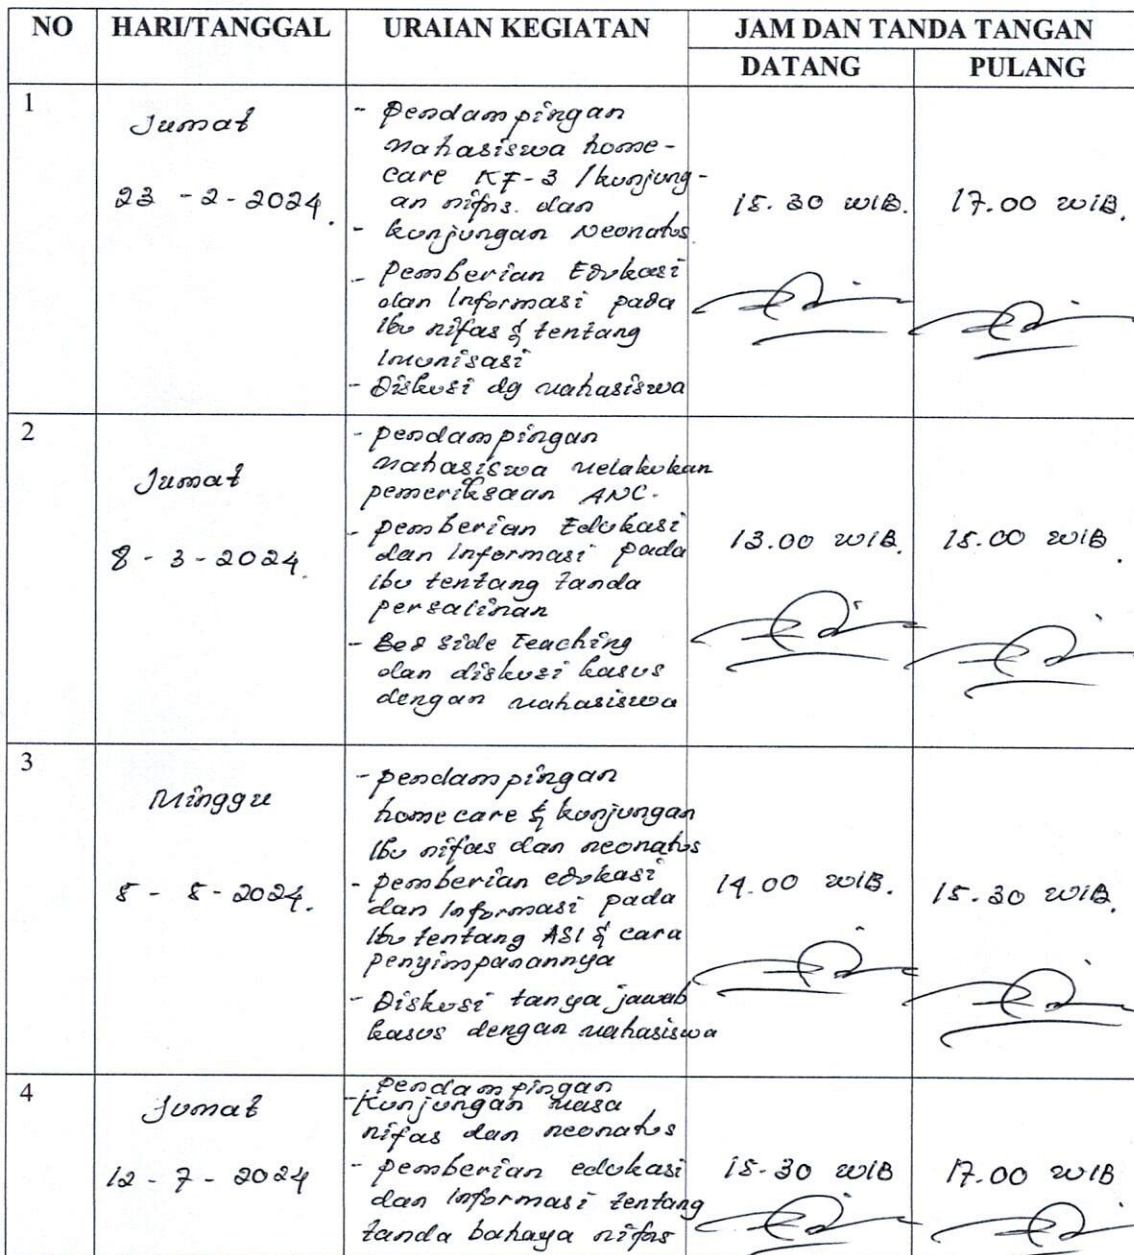 NO HARI/TANGGAL URAIAN KEGIATAN JAM DAN TANDA TANGAN
DATANG PULANG
1
Jumat
23 - 2 - 2024.
- Pendampingan
mahasiswa home-
care KF-3 / kunjung-
an nifas. dan
- kunjungan Neonatus
- Pemberian Edukasi
dan Informasi pada
Ibu nifas & tentang
Imunisasi
- Diskusi dg mahasiswa
15.30 WIB.
17.00 WIB.
2
Jumat
8 - 3 - 2024.
- pendampingan
mahasiswa melakukan
pemeriksaan ANC.
- pemberian Edukasi
dan informasi pada
ibu tentang tanda
persalinan
- Bed side Teaching
dan diskusi kasus
dengan mahasiswa
13.00 WIB.
15.00 WIB.
3
Minggu
5 - 5 - 2024.
- pendampingan
home care & kunjungan
Ibu nifas dan neonatus
- pemberian edukasi
dan Informasi pada
Ibu tentang ASI & cara
penyimpanannya
- Diskusi tanya jawab
kasus dengan mahasiswa
14.00 WIB.
15.30 WIB.
4
Jumat
12 - 7 - 2024
Pendampingan
- Kunjungan masa
nifas dan neonatus
- pemberian edukasi
dan informasi tentang
tanda bahaya nifas
15.30 WIB
17.00 WIB